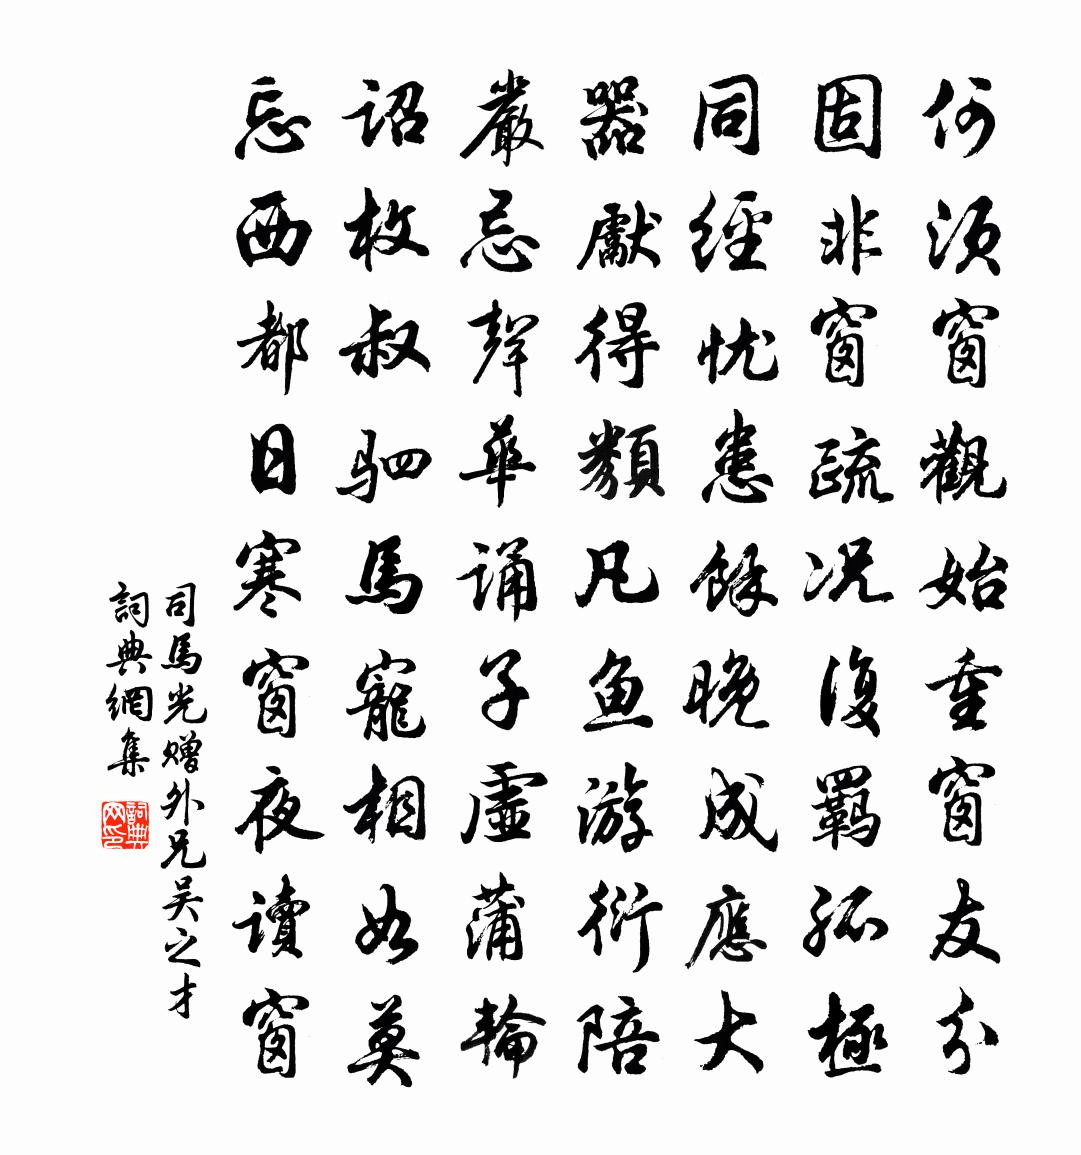 何須窗觀始重窗友分
固非窗疏况復羈孤極
同經忧患餘晚成應大
器獻得類凡鱼游衍陪
嚴忌聲華誦子虛蒲輪
詔枚叔驷馬寵相如莫
忘西都日寒窗夜讀窗
司馬光赠外兄吴之才
詞典網集
詞典网印